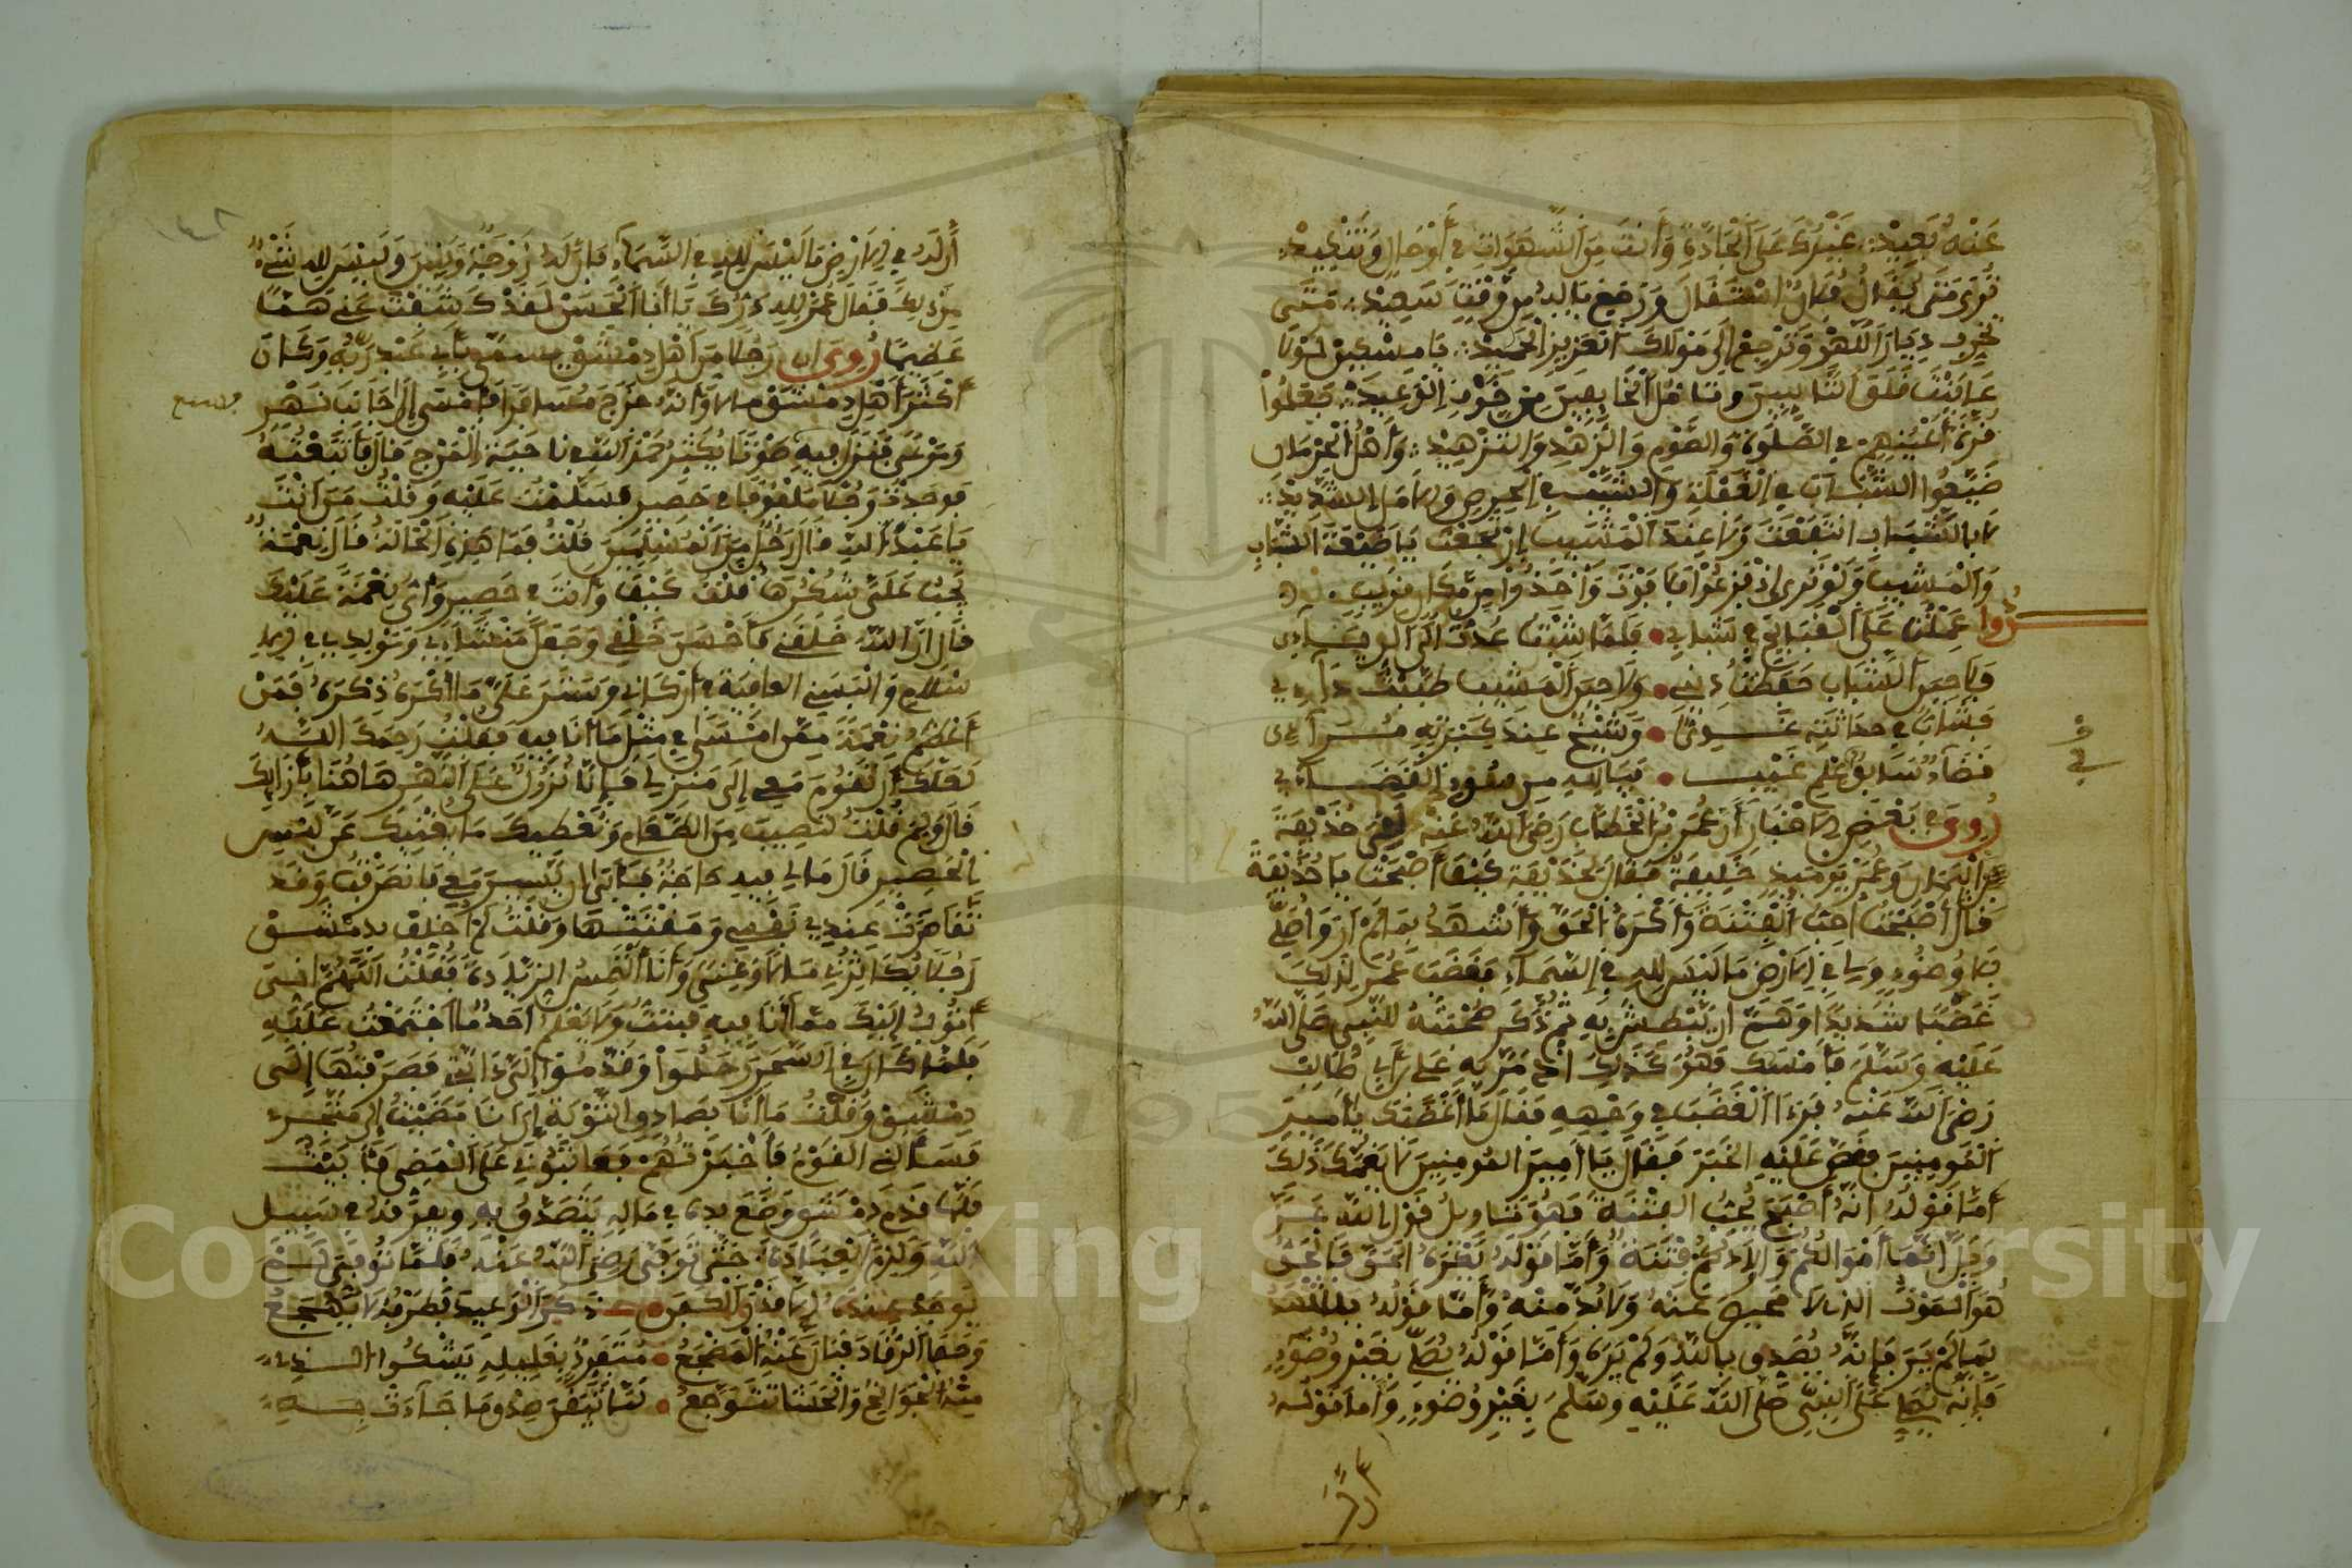 عَنْهُ بَعِيدْ: غَيْرُكَ عَلَى الْجَادَّةِ وَأَنتَ مِنَ الشَّهَوَاتِ فِي أَوْحَالٍ وَتَنْكِيدْ:
تُرَى مَتَى يُقَالُ فُلَانٌ اسْتَقَالَ وَرَجَعَ يَا لَهُ مِنْ وَقْتٍ سَعِيدْ: مَتَى
تَخْرُجُ دِيَارَ اللَّهْوِ وَتَرْجِعُ إِلَى مَوْلَاكَ الْعَزِيزِ الْحَمِيدْ: يَا مِسْكِينُ لَوْ
عَايَنْتَ قَلَقَ التَّائِبِينَ وَتَمَلْمُلَ الْخَائِفِينَ مِنْ خَوْفِ الْوَعِيدَ: جَعَلُوا
قُرَّةَ أَعْيُنِهِمْ فِي الصَّلَوةِ وَالصَّوْمِ وَالزُّهْدِ وَالتَّزْهِيدْ: وَأَهْلُ الْحِرْمَانِ
ضَيَّعُوا الشَّبَابَ فِي الْغَفْلَةِ وَالشَّيْبَ فِي الْحِرْصِ وَالْأَمَلِ الشَّدِيدْ:
لَا بِالشَّبَابِ انْتَفَعْتَ وَلَا عِنْدَ الْمَشِيبِ ارْتَجَعْتَ يَا ضَيْعَةَ الشَّبَابِ
وَالْمَشِيبِ وَلَوْ تَرَى إِذْ فَزِعُوا فَلَا فَوْتَ وَأُخِذُوا مِنْ مَّكَانٍ قَرِيبٍ
عَمِلْتُ عَلَى الْقَبَائِحِ فِي شَبَابِي • فَلَمَّا شِبْتُ عُدْتُ إِلَى الرِّيَاءِ
فَلَا حِينَ الشَّبَابِ حَفِظْتُ دِينِي • وَلَا حِينَ الْمَشِيبِ طَبَبْتُ دَائِي
فَشَابٌّ فِي حَدَاثَتِهِ غَوِيٌّ • وَشَيْخٌ عِنْدَ كَبْرَتِهِ مُرَآءِى
قَضَاءٌ سَابِقٌ عِلْمِ غَيْبٍ • فَيَا لِلَّهِ مِنْ سُوءِ الْقَضَاءِ
رُوِيَ فِي بَعْضِ الْأَخْبَارِ أَنَّ عُمَرَ بْنَ الْخَطَّابِ رَضِيَ اللَّهُ عَنْهُ لَقِيَ حُذَيْفَةَ
بْنَ الْيَمَانِ وَعُمَرُ يَوْمَئِذٍ خَلِيفَةٌ فَقَالَ لِحُذَيْفَةَ كَيْفَ أَصْبَحْتَ يَا حُذَيْفَةُ
قَالَ أَصْبَحْتُ أُحِبُّ الْفِتْنَةَ وَأَكْرَهُ الْحَقَّ وَأَشْهَدُ بِمَا لَمْ أَرَ وَأُصَلِّي
بِلَا وُضُوءٍ وَلِي فِي الْأَرْضِ مَا لَيْسَ لِلَّهِ فِي السَّمَاءِ فَغَضِبَ عُمَرُ لِذَلِكَ
غَضَبًا شَدِيدًا وَهَمَّ أَنْ يَبْطِشَ بِهِ ثُمَّ ذَكَرَ صُحْبَتَهُ لِلنَّبِيِّ صَلَّى اللَّهُ
عَلَيْهِ وَسَلَّمَ فَأَمْسَكَ فَهُوَ كَذَلِكَ إِذْ مَرَّ بِهِ عَلِيُّ بْنُ أَبِي طَالِبٍ
رَضِيَ اللَّهُ عَنْهُ فَرَأَى الْغَضَبَ فِي وَجْهِهِ فَقَالَ مَا أَغْضَبَكَ يَا أَمِيرَ
الْمُومِنِينَ فَقَصَّ عَلَيْهِ الْخَبَرَ فَقَالَ يَا أَمِيرَ الْمُومِنِينَ لَا يُغْضِبْكَ ذَلِكَ
أَمَّا قَوْلُهُ أَنَّهُ أَصْبَحَ يُحِبُّ الْفِتْنَةَ فَهُوَ تَاوِيلُ قَوْلِ اللَّهِ عَزَّ
وَجَلَّ إِنَّمَا أَمْوَالُكُمْ وَأَوْلَادُكُمْ فِتْنَةٌ وَأَمَّا قَوْلُهُ يَكْرَهُ الْحَقَّ فَالْحَقُّ
هُوَ الْمَوْتُ الَّذِي لَا مَحِيصَ عَنْهُ وَلَا بُدَّ مِنْهُ وَأَمَّا قَوْلُهُ يَشْهَدُ
بِمَا لَمْ يَرَ فَإِنَّهُ يُصَدِّقُ بِاللَّهِ وَلَمْ يَرَهُ وَأَمَّا قَوْلُهُ يُصَلِّي بِغَيْرِ وُضُوءٍ
فَإِنَّهُ يُصَلِّي عَلَى النَّبِيِّ صَلَّى اللَّهُ عَلَيْهِ وَسَلَّمَ بِغَيْرِ وُضُوءٍ وَأَمَّا قَوْلُهُ
أَنَّ لَهُ فِي الْأَرْضِ مَا لَيْسَ لِلَّهِ فِي السَّمَاءِ فَإِنَّ لَهُ زَوْجَةً وَبَنِينَ وَلَيْسَ لِلَّهِ شَيْءٌ
مِنْ ذَلِكَ فَقَالَ عُمَرُ لِلَّهِ دَرُّكَ يَا أَبَا الْحَسَنْ لَقَدْ كَشَفْتَ عَنِّي هَمًّا
عَظِيمًا رُوِيَ أَنَّ رَجُلًا مِنْ أَهْلِ دِمَشْقَ يُسَمَّى بِأَبِي عَبْدِ رَبِّهِ وَكَانَ
أَكْثَرَ أَهْلِ دِمَشْقَ مَالًا وَأَنَّهُ خَرَجَ مُسَافِرًا فَأَمْسَى إِلَى جَانِبِ نَهْرٍ
وَمَرْعًى فَنَزَلَ فِيهِ صَوْتًا يُكْثِرُ حَمْدَ اللَّهِ فِي نَاحِيَةِ الْمَرْجِ قَالَ فَاتَّبَعْتُهُ
فَوَجَدْتُ رَجُلًا مَلْفُوفًا فِي حَصِيرٍ فَسَلَّمْتُ عَلَيْهِ وَقُلْتُ مَنْ أَنْتَ
يَا عَبْدَ اللَّهِ قَالَ رَجُلٌ مِنَ الْمُسْلِمِينَ قُلْتُ فَمَا هَذِهِ الْحَالَةُ قَالَ نِعْمَةٌ
يَجِبُ عَلَيَّ شُكْرُهَا فَقُلْتُ كَيْفَ وَأَنْتَ فِي حَصِيرٍ وَأَيُّ نِعْمَةٍ عَلَيْكَ
قَالَ إِنَّ اللَّهَ خَلَقَنِي فَأَحْسَنَ خَلْقِي وَجَعَلَ مَنْشَاءِي وَمَوْلِدِي فِي الْإِ
سْلَامِ وَأَلْبَسَنِي الْعَافِيَةَ فِي أَرْكَانِي وَسَتَرَ عَلَيَّ مَا أَكْرَهُ ذِكْرَهُ فَمَنْ
أَعْظَمُ نِعْمَةً مِمَّنْ أَمْسَى فِي مِثْلِ مَا أَنَا فِيهِ فَقُلْتُ رَحِمَكَ اللَّهُ
لَعَلَّكَ أَنْ تَقُومَ مَعِي إِلَى مَنْزِلِي فَإِنَّا نُزُولٌ عَلَى النَّهْرِ هَاهُنَا بِإِزَائِكَ
قَالَ وَلِمَ قُلْتُ لِتُصِيبَ مِنَ الطَّعَامِ وَنُعْطِيكَ مَا يُغْنِيكَ عَنْ لُبْسِ
الْحَصِيرِ قَالَ مَا لِي فِيهِ حَاجَةٌ فَأَبَى أَنْ يَسِيرَ مَعِي فَانْصَرَفْتُ وَقَدْ
تَقَاصَرَتْ عِنْدِي نَفْسِي وَمَقَتُّهَا وَقُلْتُ لَمْ أُخَلِّفْ بِدِمَشْقَ
رَجُلًا يُكَاثِرُنِي مَالًا وَغِنًى وَأَنَا أَلْتَمِسُ الزِّيَادَةَ فَقُلْتُ اللَّهُمَّ إِنِّي
أَتُوبُ إِلَيْكَ مِمَّا أَنَا فِيهِ فَبِتُّ وَلَا يَعْلَمُ أَحَدٌ مَا اجْتَمَعْتُ عَلَيْهِ
فَلَمَّا كَانَ فِي السَّحَرِ رَحَلُوا وَقَدَّمُوا إِلَيَّ دَابَّتِي فَصَرَفْتُهَا إِلَى
دِمَشْقَ وَقُلْتُ مَا أَنَا بِصَادِقِ التَّوْبَةِ إِنْ أَنَا مَضَيْتُ إِلَى مَتْجَرِي
فَسَأَلَنِي الْقَوْمُ فَأَخْبَرْتُهُمْ فَعَاتَبُونِي عَلَى الْمُضِيِّ فَأَبَيْتُ
فَلَمَّا قَدِمَ دِمَشْقَ وَضَعَ يَدَهُ فِي مَالِهِ يَتَصَدَّقُ بِهِ وَيُفَرِّقُهُ فِي سَبِيلِ
اللَّهِ وَلَزِمَ الْعِبَادَةَ حَتَّى تُوُفِّيَ رَضِيَ اللَّهُ عَنْهُ فَلَمَّا تُوُفِّيَ لَمْ
يُوجَدْ عِنْدَهُ إِلَّا قَدْرُ الْكَفَنِ • ذَكَرَ الْوَعِيدَ فَطَرْفُهُ لَا يَهْجَعُ
وَجَفَا الرُّقَادَ فَبَانَ عَنْهُ الْمَضْجَعُ • مُتَفَرِّدٌ بِغَلِيلِهِ يَشْكُوا الَّذِي
مِنْهُ الْجَوَانِحُ وَالْحَشَا تَتَوَجَّعُ • لَمَّا تَيَقَّنَ صِدْقَ مَا جَاءَتْ بِهِ